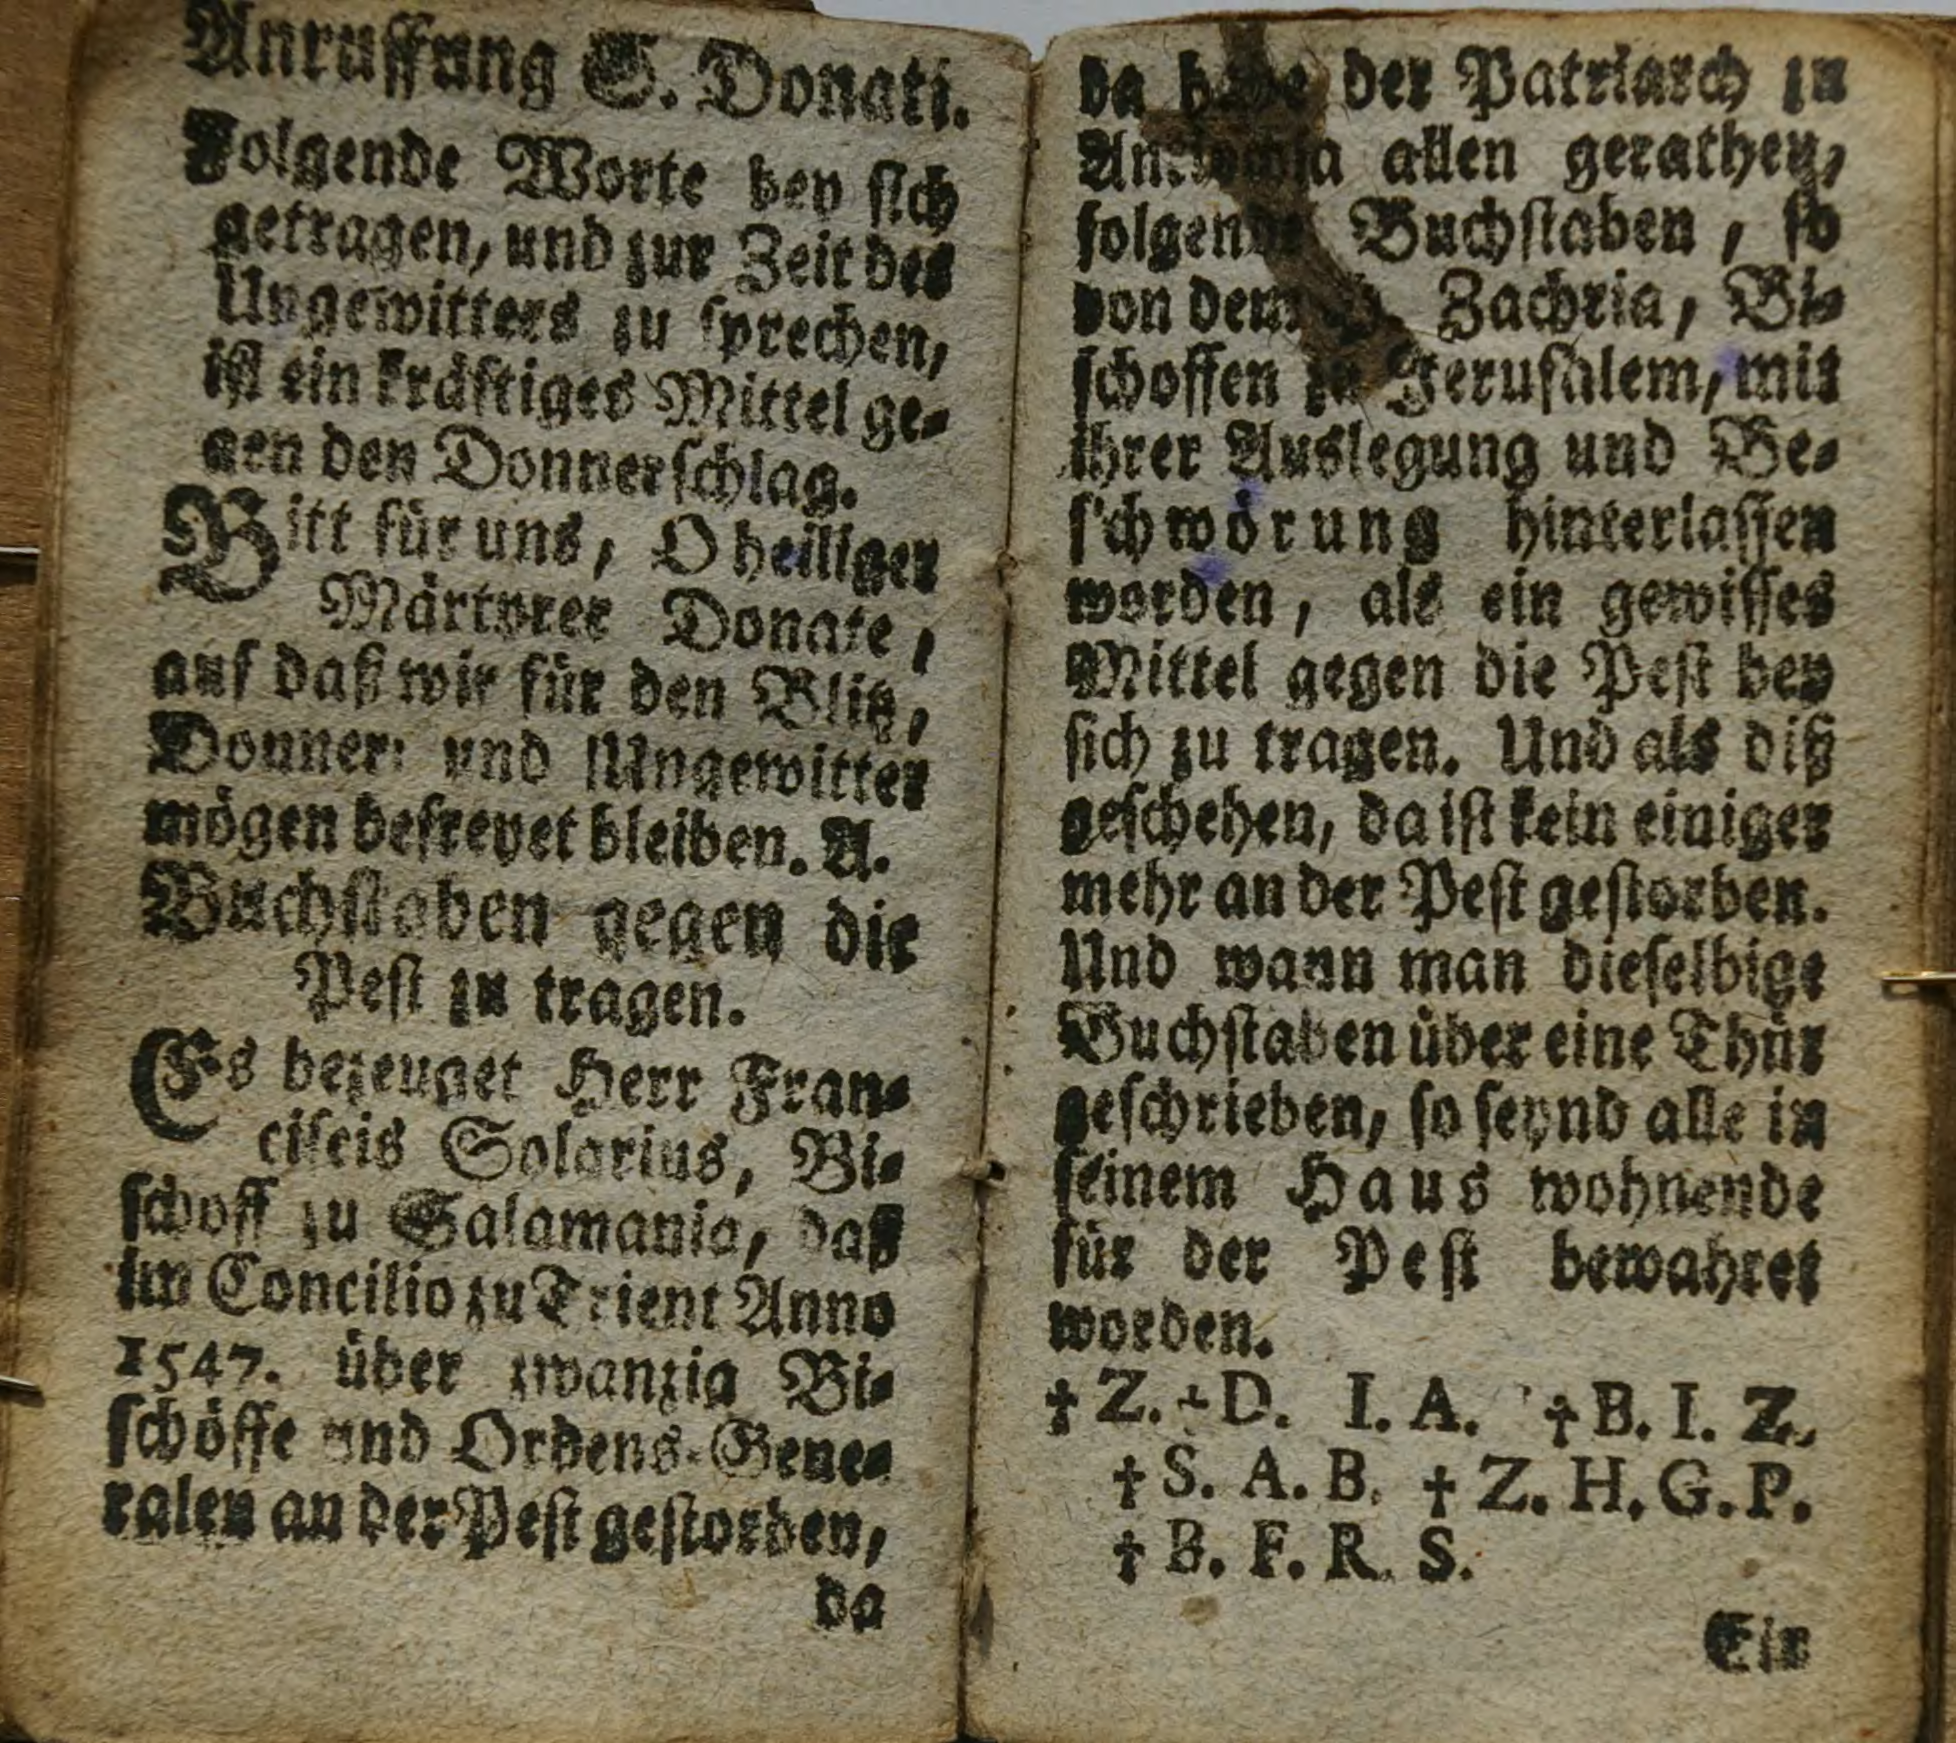 Anruffung S. Donati.
Folgende Worte bey sich
getragen, und zur Zeit des
Ungewitters zu sprechen,
ist ein kräftiges Mittel ge-
gen den Donnerschlag.
Bitt für uns, O heiliger
Märtyrer Donate,
auf daß wir für den Blitz,
Donner: und Ungewitter
mögen befreyet bleiben. A.
Buchstaben gegen die
Pest zu tragen.
Es bezeuget Herr Fran-
ciscis Solarius, Bi-
schoff zu Salamania, daß
im Concilio zu Trient Anno
1547. über zwanzig Bi-
schöffe und Ordens-Gene-
ralen an der Pest gestorben,
da
da der Patriarch zu
allen gerathen,
Buchstaben, so
von dem Zachria, Bi-
schoffen zu Jerusalem, mit
ihrer Auslegung und Be-
schwörung hinterlassen
worden, als ein gewisses
Mittel gegen die Pest bey
sich zu tragen. Und als diß
geschehen, da ist kein einiger
mehr an der Pest gestorben.
Und wann man dieselbige
Buchstaben über eine Thür
geschrieben, so seynd alle in
seinem Haus wohnende
für der Pest bewahret
worden.
† Z. † D. I. A. † B. I. Z.
† S. A. B. † Z. H. G. P.
† B. F. R. S.
Ein